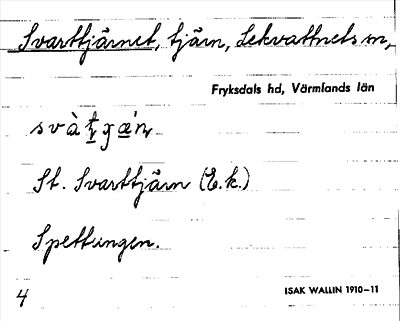 Svarttjärnet, tjärn, Lekvattnets sn,
Fryksdals hd, Värmlands län
St. Svarttjärn (E.k.)
Spettungen.
4
ISAK WALLIN 1910–11